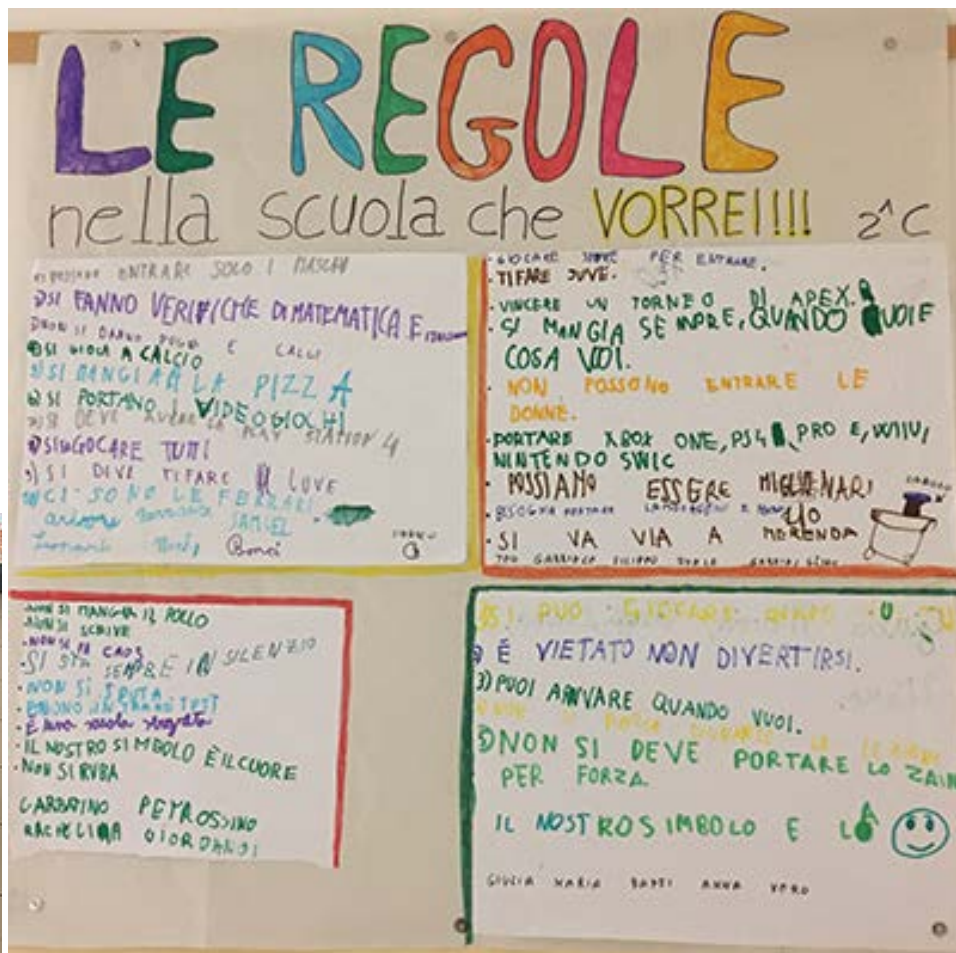 LE REGOLE
nella scuola che VORREI!!!! 2^C
ENTRARE SOLO I MASCHI
2) SI FANNO VERIFICHE DI MATEMATICA E
3) NON SI DANNO PUGNI E CALCI
4) SI GIOCA A CALCIO
5) SI MANGIA LA PIZZA
6) SI PORTANO I VIDEOGIOCHI
7) SI DEVE AVERE LA PLAY STATION 4
GIOCARE TUTTI
9) SI DEVE TIFARE
10) CI SONO LE FERRARI
SAMUEL
· GIOCARE PER ENTRARE.
· TIFARE JUVE.
· VINCERE UN TORNEO DI APEX.
· SI MANGIA SEMPRE, QUANDO VUOI E
COSA VOI.
· NON POSSONO ENTRARE LE
DONNE.
· PORTARE XBOX ONE, PS4 PRO E, WIIU,
NINTENDO SWIC
· POSSIAMO ESSERE MIGLIENARI
· BISOGNA PORTARE
· SI VA VIA A MERENDA
FILIPPO
· NON SI MANGIA IL POLLO
· NON SI SCRIVE
· NON SI FA CAOS
· SI STA SEMPRE IN SILENZIO
· NON SI SPUTA
· ENTRANO TUTTI
· È una scuola stregata
· IL NOSTRO SIMBOLO È IL CUORE
· NON SI RUBA
GARBARINO PETROSSINO
1) SI PUO GIOCARE
2) È VIETATO NON DIVERTIRSI.
3) PUOI ARIVARE QUANDO VUOI.
5) NON SI DEVE PORTARE LO ZAIN
PER FORZA.
IL NOSTRO SIMBOLO E LO
GIULIA MARIA ANNA